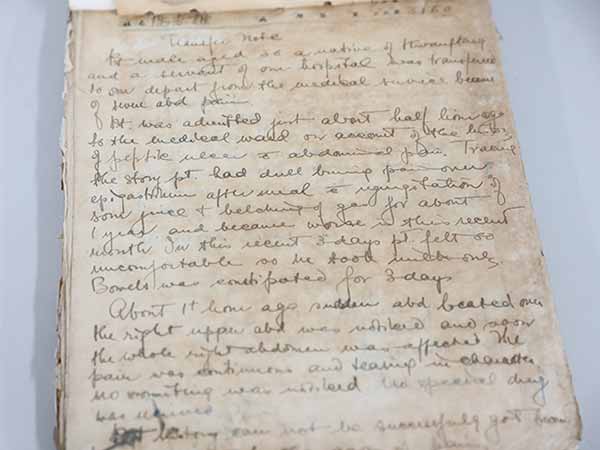 Transfer Note
Pt male aged 30 a native of
and a servant of our hospital was transferred
to our depart from the medical service because
of severe abd pain
Pt. was admitted just about half hour ago
to the medical ward on account of the history
of peptic ulcer & abdominal pain. Tracing
the story pt. had dull burning pain over
epigastrium after meal & regurgitation of
sour juice & belching of gas for about
1 year and became worse in this recent
month In this recent 3 days pt. felt so
uncomfortable so he took only
Bowels was constipated for 3 days
About 1 hour ago sudden abd over
the right upper abd was noticed and soon
the whole right abdomen was affected The
pain was continuous and tearing in character
no vomiting was noticed No special drug
was
history can not be successfully got from